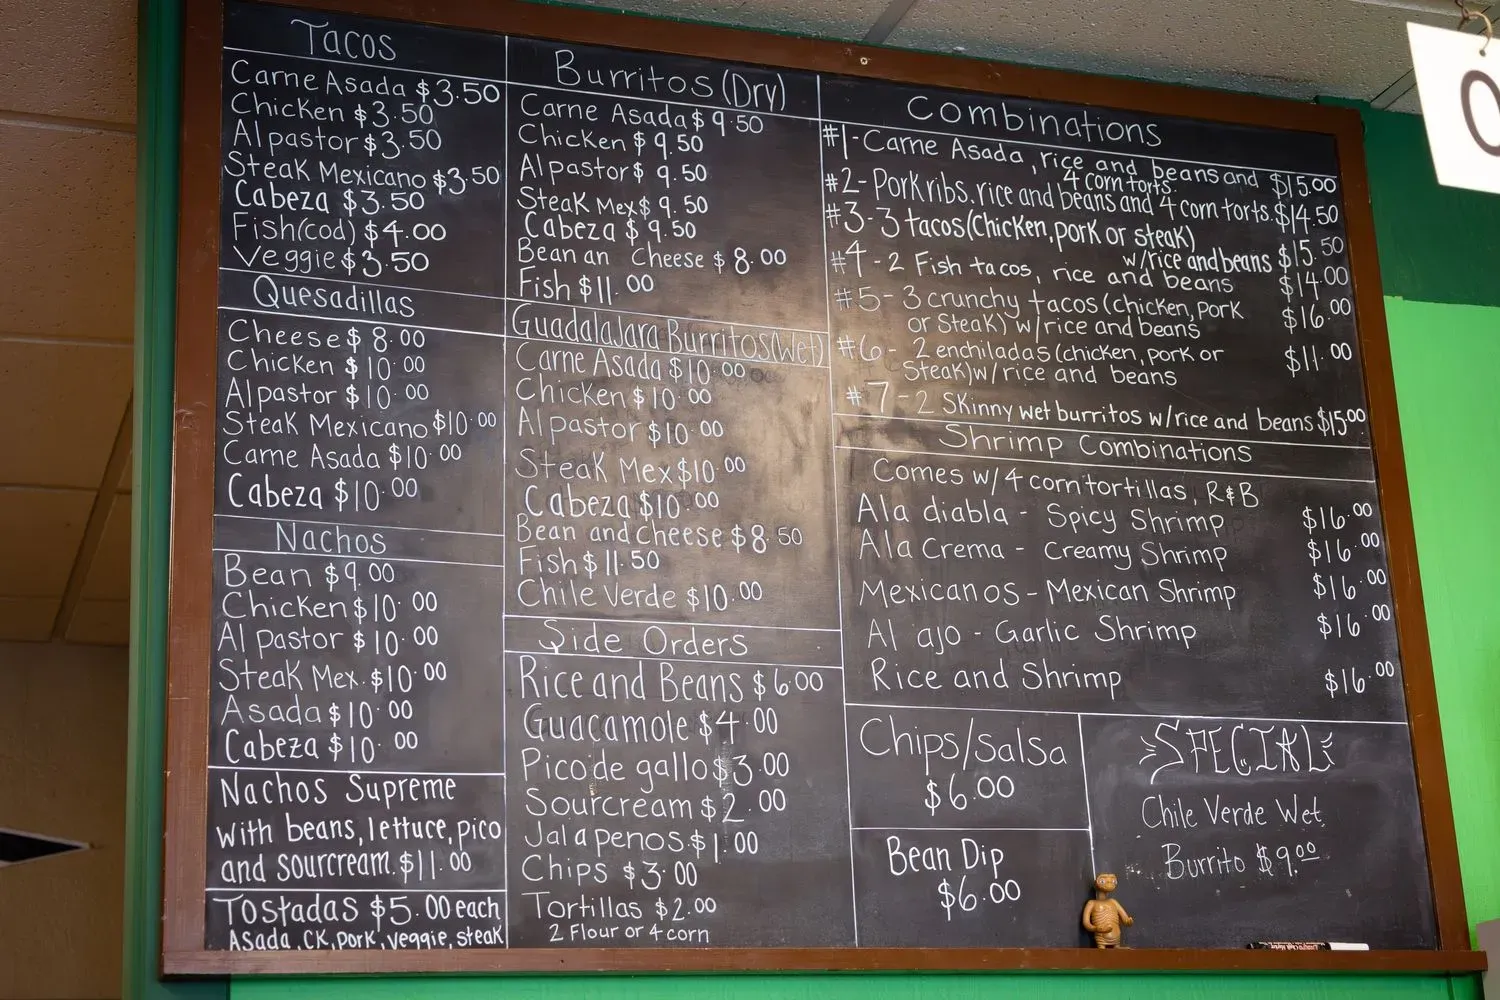 Tacos
Carne Asada $3.50
Chicken $3.50
Al pastor $3.50
Steak Mexicano $3.50
Cabeza $3.50
Fish(cod) $4.00
Veggie $3.50
Quesadillas
Cheese $8.00
Chicken $10.00
Al pastor $10.00
Steak Mexicano $10.00
Carne Asada $10.00
Cabeza $10.00
Nachos
Bean $9.00
Chicken $10.00
Al pastor $10.00
Steak Mex. $10.00
Asada $10.00
Cabeza $10.00
Nachos Supreme
with beans, lettuce, pico
and sourcream. $11.00
Tostadas $5.00 each
Asada, CK, pork, veggie, steak
Burritos (Dry)
Carne Asada $9.50
Chicken $9.50
Al pastor $9.50
Steak Mex $9.50
Cabeza $9.50
Bean an Cheese $8.00
Fish $11.00
Guadalajara Burritos(Wet)
Carne Asada $10.00
Chicken $10.00
Al pastor $10.00
Steak Mex $10.00
Cabeza $10.00
Bean and Cheese $8.50
Fish $11.50
Chile Verde $10.00
Side Orders
Rice and Beans $6.00
Guacamole $4.00
Pico de gallo $3.00
Sourcream $2.00
Jalapenos $1.00
Chips $3.00
Tortillas $2.00
2 Flour or 4 corn
Combinations
#1-Carne Asada, rice and beans and $15.00
4 corn torts.
#2-Pork ribs. rice and beans and 4 corn torts. $14.50
#3-3 tacos(Chicken, pork or steak)
w/rice and beans $15.50
#4-2 Fish tacos, rice and beans $14.00
#5-3 crunchy tacos (chicken, pork
or Steak) w/rice and beans $16.00
#6-2 enchiladas (chicken, pork or
Steak) w/rice and beans $11.00
#7-2 Skinny wet burritos w/rice and beans $15.00
Shrimp Combinations
Comes w/4 corn tortillas, R&B
Ala diabla - Spicy Shrimp $16.00
Ala Crema - Creamy Shrimp $16.00
Mexicanos - Mexican Shrimp $16.00
Al ajo - Garlic Shrimp $16.00
Rice and Shrimp $16.00
Chips/Salsa
$6.00
Bean Dip
$6.00
SPECIAL
Chile Verde Wet
Burrito $9.00